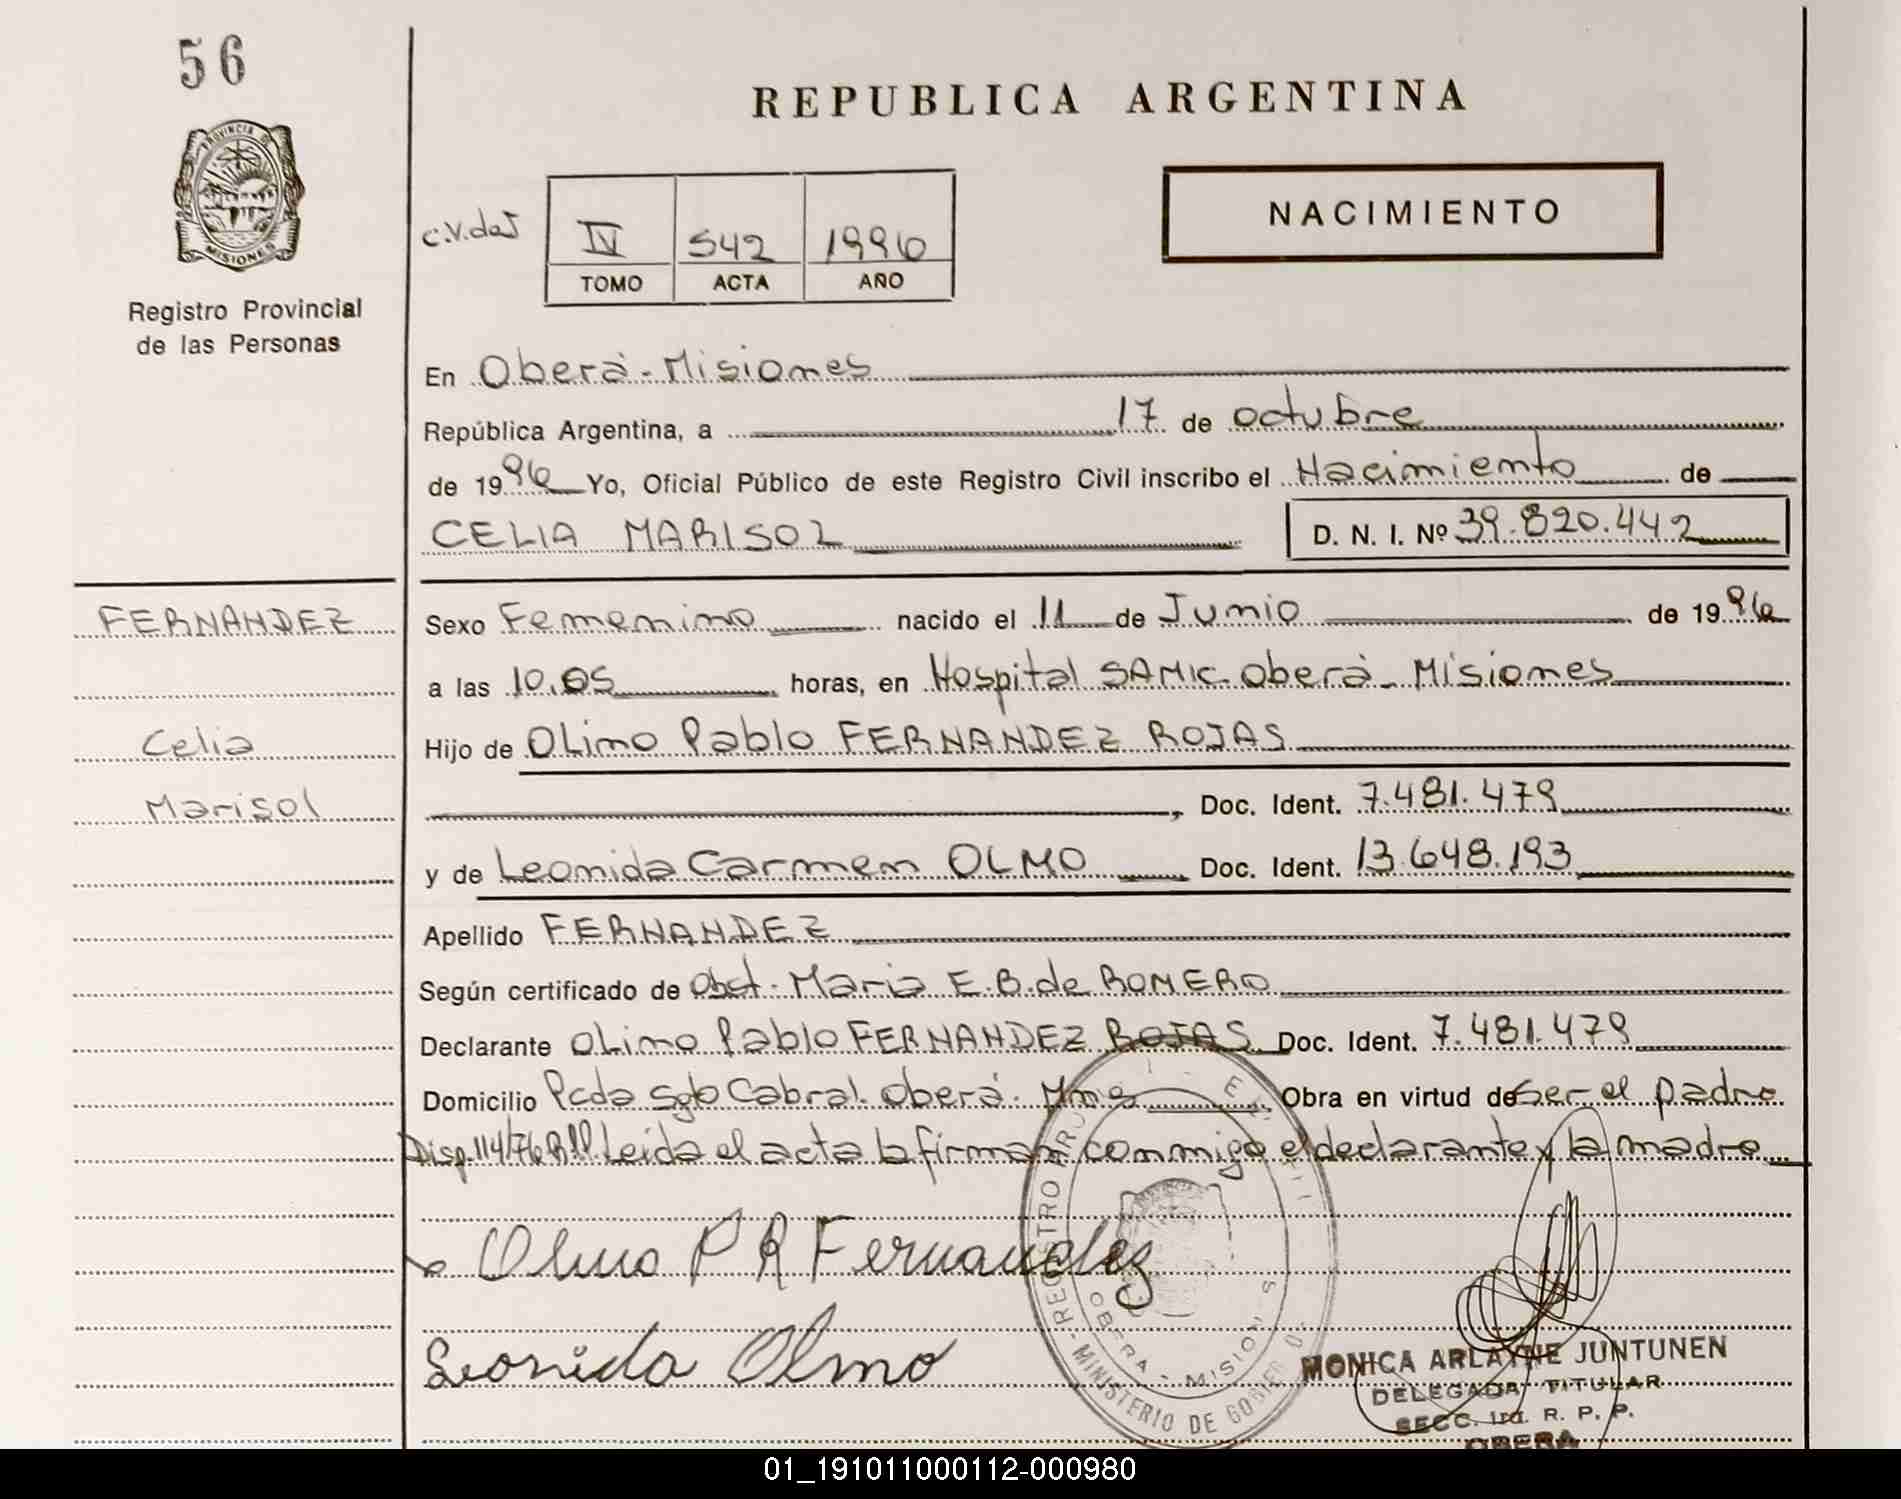 56
REPUBLICA ARGENTINA
PROVINCIA DE
MISIONES
Registro Provincial
de las Personas
c.v.da5
IV 542 1996
TOMO ACTA AÑO
NACIMIENTO
En Oberá - Misiones
República Argentina, a 17 de octubre
de 1996 Yo, Oficial Público de este Registro Civil inscribo el Nacimiento de
CELIA MARISOL
D. N. I. Nº 39.820.442
FERNANDEZ
Celia
Marisol
Sexo Femenino nacido el 11 de Junio de 1996
a las 10.05 horas, en Hospital SAMIC Oberá - Misiones
Hijo de OLimo Pablo FERNANDEZ ROJAS
, Doc. Ident. 7.481.479
y de Leonida Carmen OLMO Doc. Ident. 13.648.193
Apellido FERNANDEZ
Según certificado de Obst. Maria E.B. de ROMERO
Declarante OLimo Pablo FERNANDEZ ROJAS Doc. Ident. 7.481.479
Domicilio Pcda Sgto Cabral. Oberá. Mnes Obra en virtud de Ser el padre
Disp. 114/76 Leida el acta la firman conmigo el declarante y la madre
Olimo P R Fernandez
Leonida Olmo
MINISTERIO DE GOBIERNO
OBERA - MISIONES
MONICA ARLATHE JUNTUNEN
DELEGADA TITULAR
SECC. 1ra. R. P. P.
OBERA
01_191011000112-000980